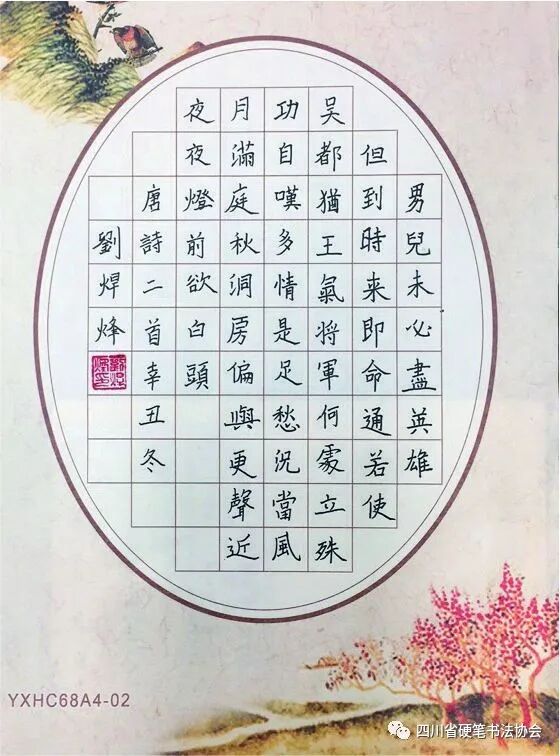 男兒未必盡英雄
但到時来即命通若使
吴都猶王氣将軍何處立殊
功自嘆多情是足愁況當風
月滿庭秋洞房偏與更聲近
夜夜燈前欲白頭
唐詩二首辛丑冬
劉焊烽
YXHC68A4-02
四川省硬笔书法协会